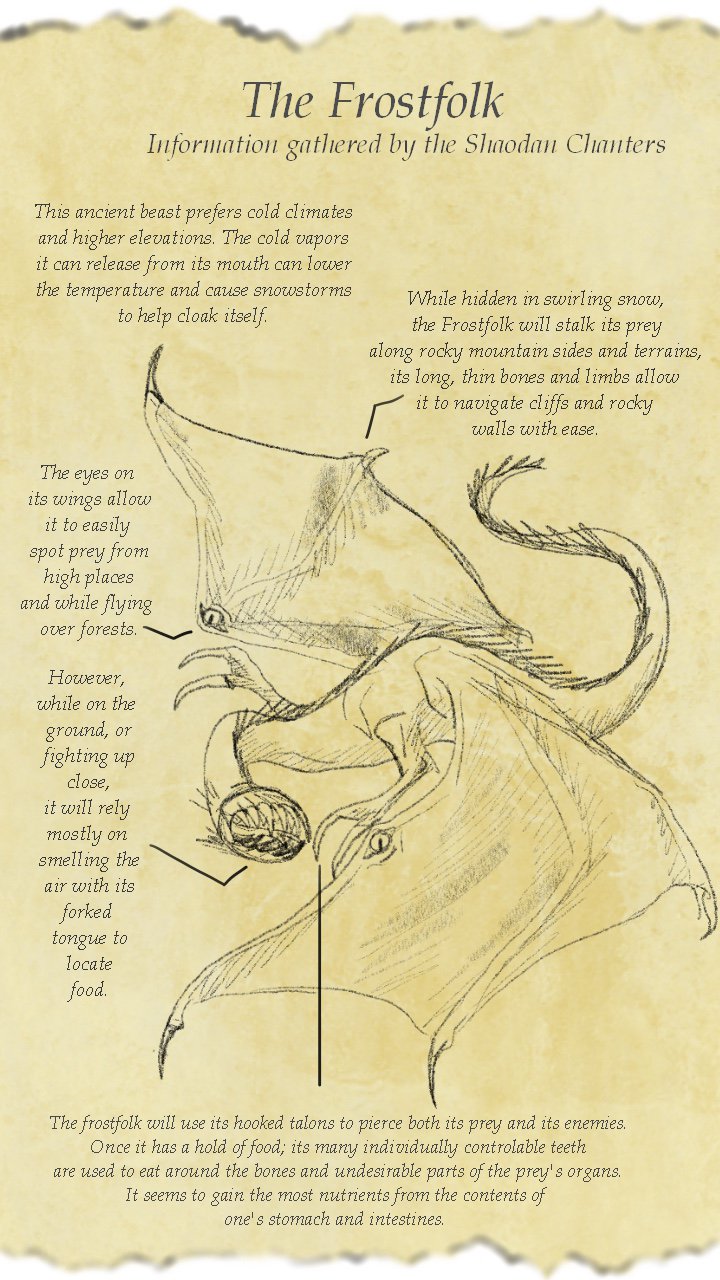 The Frostfolk
Information gathered by the Shaodan Chanters
This ancient beast prefers cold climates
and higher elevations. The cold vapors
it can release from its mouth can lower
the temperature and cause snowstorms
to help cloak itself.
While hidden in swirling snow,
the Frostfolk will stalk its prey
along rocky mountain sides and terrains,
its long, thin bones and limbs allow
it to navigate cliffs and rocky
walls with ease.
The eyes on
its wings allow
it to easily
spot prey from
high places
and while flying
over forests.
However,
while on the
ground, or
fighting up
close,
it will rely
mostly on
smelling the
air with its
forked
tongue to
locate
food.
The frostfolk will use its hooked talons to pierce both its prey and its enemies.
Once it has a hold of food; its many individually controlable teeth
are used to eat around the bones and undesirable parts of the prey's organs.
It seems to gain the most nutrients from the contents of
one's stomach and intestines.